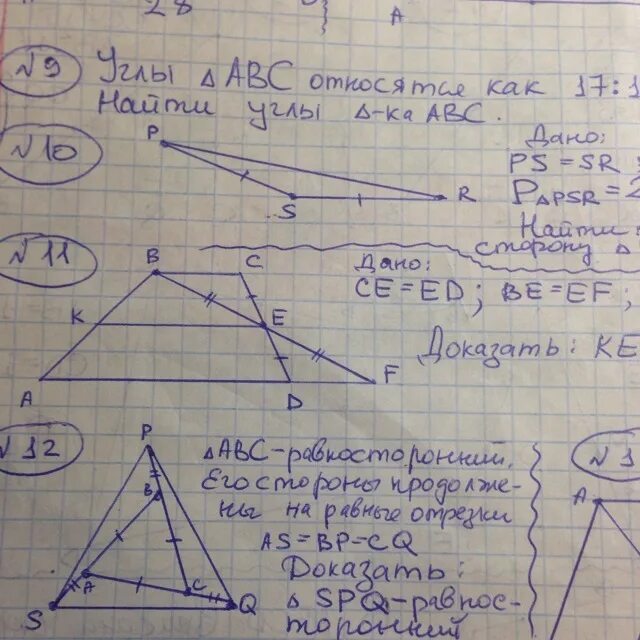 28
A
№9 Углы △ABC относятся как 17:1
Найти углы △-ка ABC.
№10
P
S
R
Дано:
PS = SR
P△PSR = 2
Найти
сторону △
№11
B
C
K
E
A
D
F
Дано:
CE = ED; BE = EF;
Доказать: KE
№12
P
B
A
C
S
Q
△ABC-равносторонний,
Его стороны продолже-
ны на равные отрезки
AS = BP = CQ
Доказать:
△ SPQ-равнос-
торонний
№1
A